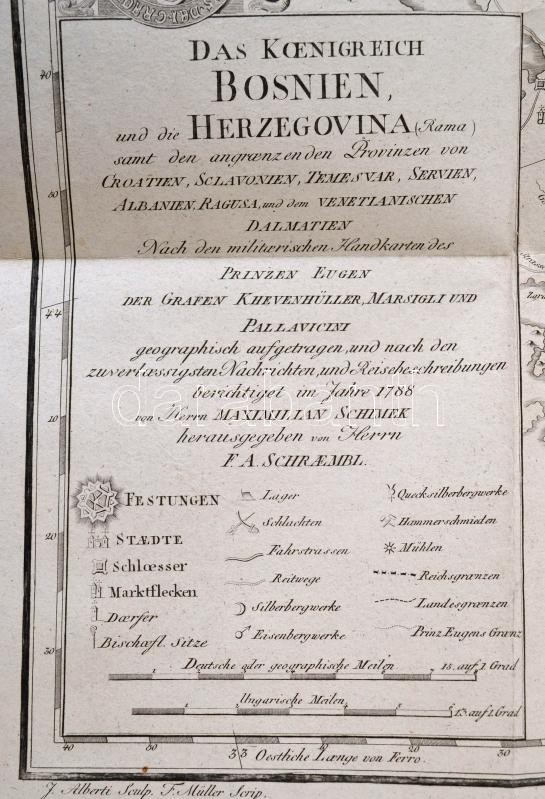 DAS KŒNIGREICH
BOSNIEN,
und die HERZEGOVINA (Rama)
samt den angrænzenden Provinzen von
CROATIEN, SCLAVONIEN, TEMESVAR, SERVIEN,
ALBANIEN, RAGUSA, und dem VENETIANISCHEN
DALMATIEN
Nach den militærischen Handkarten des
PRINZEN EUGEN
DER GRAFEN KHEVENHÜLLER, MARSIGLI UND
PALLAVICINI
geographisch aufgetragen, und nach den
zuverlæssigsten Nachrichten, und Reisebeschreibungen
berichtiget im Jahre 1788
von Herrn MAXIMILIAN SCHIMEK
herausgegeben von Herrn
F. A. SCHRÆMBL.
FESTUNGEN
STÆDTE
Schlœsser
Marktflecken
Dœrfer
Bischœfl. Sitze
Lager
Schlachten
Fahrstrassen
Reitwege
Silberbergwerke
Eisenbergwerke
Quecksilberbergwerke
Hammerschmieden
Mühlen
Reichsgrænzen
Landesgrænzen
Prinz Eugens Grænz
Deutsche oder geographische Meilen 15. auf 1. Grad
Ungarische Meilen 13. auf 1. Grad
40
60
44
10
20
30
40 50 33 10 20 30
Oestliche Længe von Ferro.
J. Alberti Sculp. F. Müller Scrip.